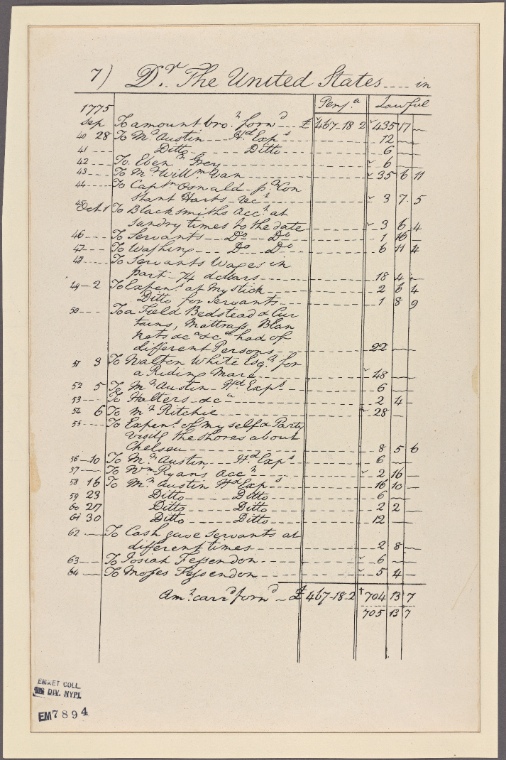 7) Dr. The United States .... in
Pensa. Lawful
1775
Sep. To amount bro't forwd. £ 467-18 2 435 17 —
40 28 To Mr. Austin Hd. Exps. 12 —
41 — Ditto Ditto 6 —
42 — To Ebenr. Grey 6 —
43 — To Mr. Willm. Van 35 6 11
44 — To Captn. Oswald pr. Con
stant Harts &c. 3 7 5
45 Oct. 1 To Blacksmiths Acct. at
sundry times to the date 3 6 4
46 — To Servants Do. Do. 1 16 —
47 — To Washing Do. Do. 6 11 4
48 — To Servants Wages in
part 74 dollars 18 4 —
49 — 2 To Expens. at Mystick 2 6 4
Ditto for Servants 1 8 9
50 — To a Field Bedstead & Cur
tains, Mattrass, Blan
kets &c. &c. had of
different Persons 22 —
51 3 To Walton White Esqr. for
a Riding Mare 48 —
52 5 To Mr. Austin Hd. Exps. 6 —
53 — To Halters &c. 2 4
54 6 To Mr. Ritchie 28 —
55 — To Expens. of myself & Party
visitg. the shores about
Chelsea 8 5 6
56 — 10 To Mr. Austin Hd. Exps. 6 —
57 — To Wm. Ryans Acct. 2 16 —
58 16 To Mr. Austin Hd. Exps. 16 10 —
59 23 Ditto Ditto 6 —
60 27 Ditto Ditto 2 2
61 30 Ditto Ditto 12 —
62 — To Cash gave servants at
different times 2 8 —
63 — To Josiah Fessendon 6 —
64 — To Moses Fessendon 5 4 —
Amt. carrd. forwd. £ 467-18-2 704 13 7
705 13 7
EMMET COLL.
MSS DIV. NYPL
EM7894